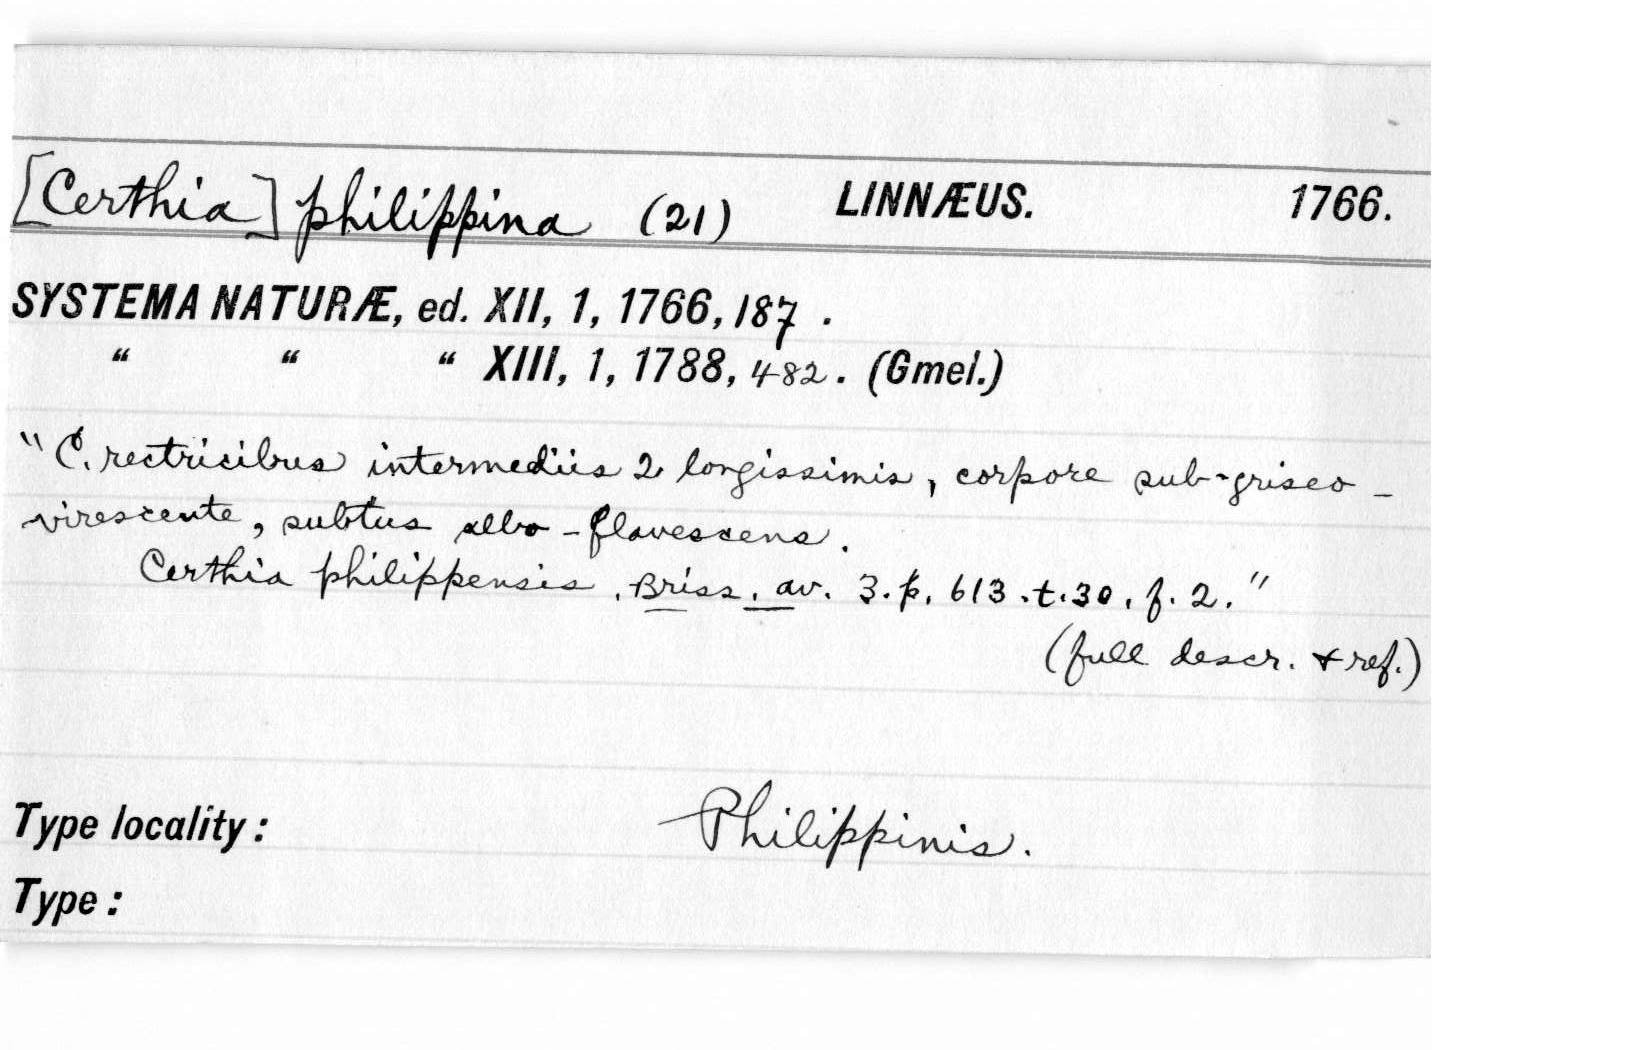 [Certhia] philippina (21) LINNÆUS. 1766.
SYSTEMA NATURÆ, ed. XII, 1, 1766, 187.
“ “ “ XIII, 1, 1788, 482. (Gmel.)
"C. rectricibus intermediis 2 longissimis, corpore sub-griseo-
virescente, subtus albo-flavescens.
Certhia philippensis. Briss. av. 3. p. 613. t. 30. f. 2."
(full descr. & ref.)
Type locality: Philippinis.
Type: